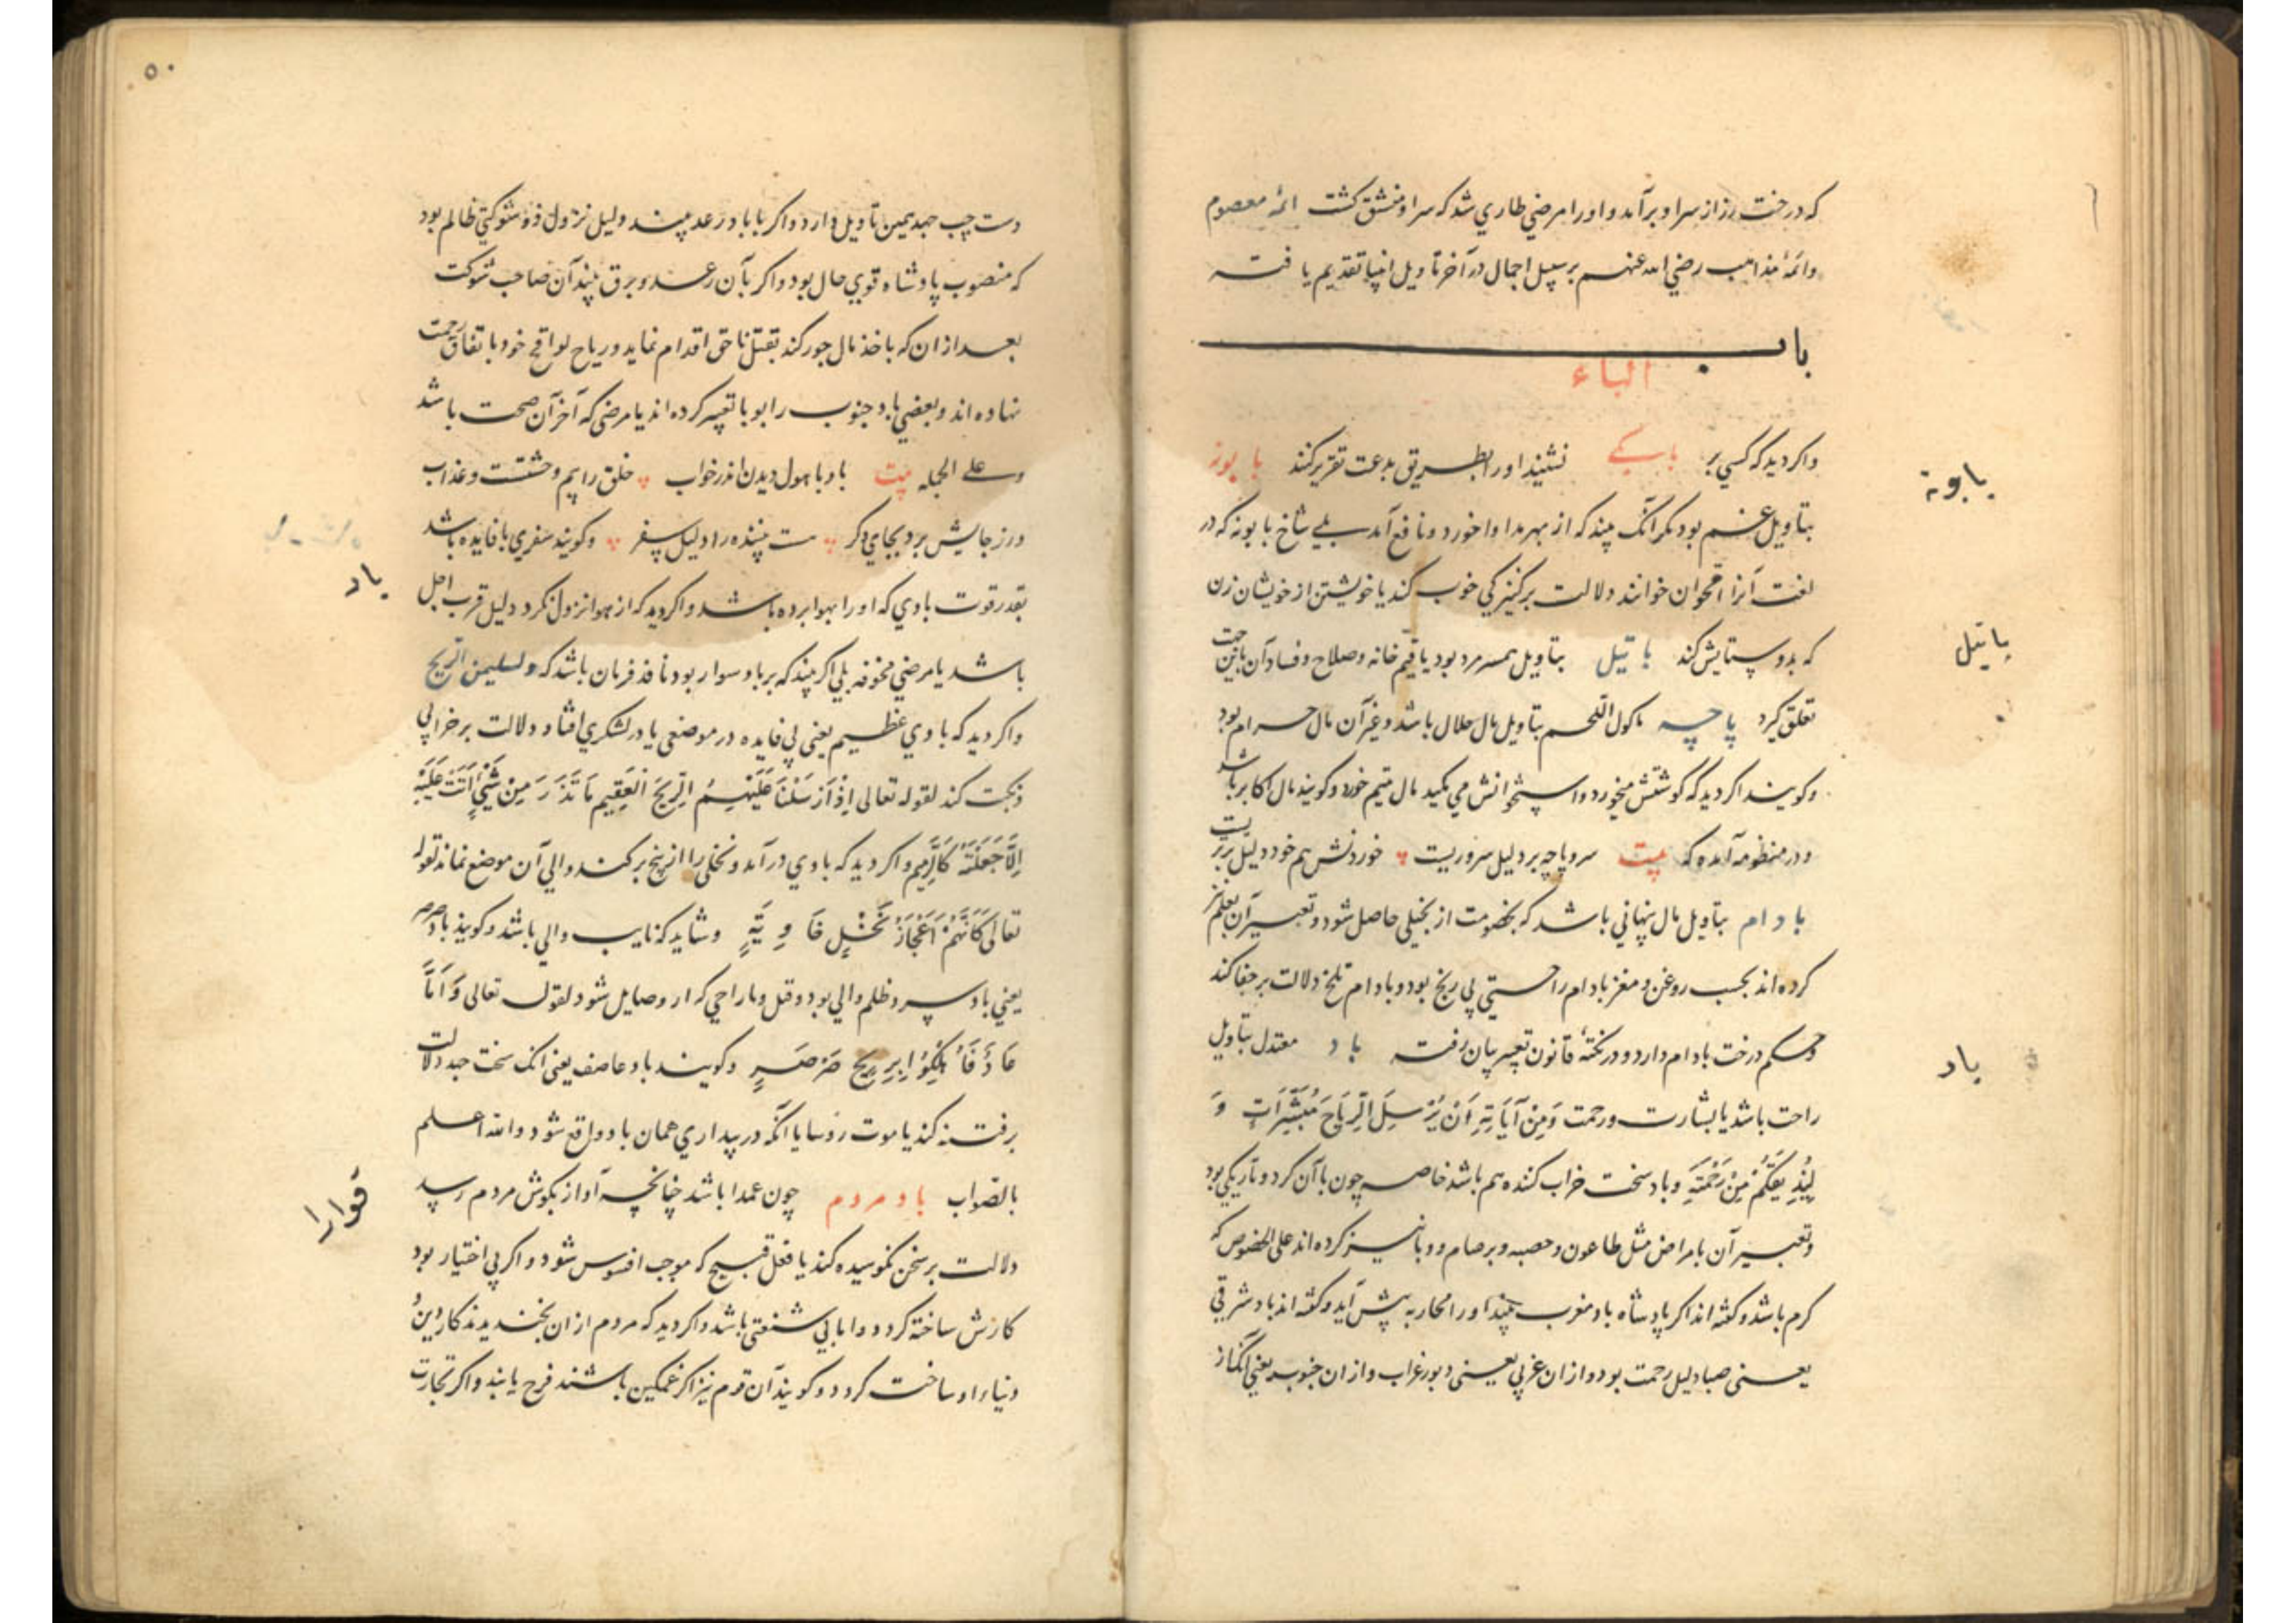 که درخت رز از سر او برآمد و او را مرضی طاری شد که سر او منشق کشت ائمهٔ معصوم
وائمهٔ مذاهب رضی الله عنهم بر سبیل اجمال در آخر تاویل انبیا تقدیم یافته
باب
الباء
واکر دید که کسی بر نشیند او را بطریق بدعت تقریر کنند بابونه
بابونة
بتاویل غم بود مکر آنک بیند که از بهر مداوا خورد و نافع آمد بلی شاخ بابونه که در
لغت آنرا اقحوان خوانند دلالت بر کنیزکی خوب کند یا خویشتن از خویشان زن
که بدو ستایش کند باتیل بتاویل همسر مرد بود یا قیم خانه وصلاح وفساد آن باین جهت
باتیل
تعلق کیرد پاچه ماکول اللحم بتاویل مال حلال باشد وغیر آن مال حرام بود
وکویند اکر دید که کوشتش میخورد واستخوانش می مکید مال یتیم خورد وکویند مال اکابر باشد
ودر منظومه آمده که بیت سر و پاچه بر دلیل سروریست خوردنش هم خود دلیل
بادام بتاویل مال پنهانی باشد که بخصومت از بخیلی حاصل شود وتعبیر آن بعلم نیز
کرده اند بحسب روغن ومغز بادام راحتی بی رنج بود وبادام تلخ دلالت بر جفا کند
وحکم درخت بادام دارد ودر نکتهٔ قانون تعبیر بیان رفته باد معتدل بتاویل
باد
راحت باشد یا بشارت ورحمت وَمِنْ آيَاتِهِ أَنْ يُرْسِلَ الرِّيَاحَ مُبَشِّرَاتٍ وَ
لِيُذِيقَكُمْ مِنْ رَحْمَتِهِ وباد سخت خراب کننده هم باشد خاصه چون با آن کرد وتاریکی بود
وتعبیر آن بامراض مثل طاعون وحصبه وبرصام ووبا نیز کرده اند علی الخصوص که
کرم باشد وکفته اند اکر پادشاه باد مغرب بیند او را محاربه پیش آید وکفته اند باد شرقی
یعنی صبا دلیل رحمت بود وازان غربی یعنی دبور عذاب وازان جنوب یعنی آنک از
۵۰
دست چپ جهد همین تاویل دارد واکر با باد رعد بیند دلیل نزول ذو شوکتی ظالم بود
که منصوب پادشاه قوی حال بود واکر بآن رعد وبرق بیند آن صاحب شوکت
بعد ازان که باخذ مال جور کند بقتل ناحق اقدام نماید وریاح لواقح خود باتفاق رحمت
نهاده اند وبعضی باد جنوب را بوبا تعبیر کرده اند یا مرضی که آخر آن صحت باشد
وعلی الجمله بیت باد با هول دیدن اندر خواب خلق را بیم وحشتست وعذاب
ور ز جایش برد بجای دکر هست بیننده را دلیل سفر وکویند سفری با فایده باشد
باد
بقدر قوت بادی که او را بهوا برده باشد واکر دید که از هوا نزول کرد دلیل قرب اجل
باشد یا مرضی مخوفه بلی اکر بیند که بر باد سوار بود نافذ فرمان باشد که ولسلیمن الریح
واکر دید که بادی عظیم یعنی بی فایده در موضعی یا در لشکری افتاد دلالت بر خرابی
ونکبت کند لقوله تعالی اِذْ اَرْسَلْنَا عَلَيْهِمُ الرِّيحَ الْعَقِيمَ مَا تَذَرُ مِنْ شَيْءٍ اَتَتْ عَلَيْهِ
اِلَّا جَعَلَتْهُ كَالرَّمِيمِ واکر دید که بادی درآمد ونخلی را از بیخ برکند والی آن موضع نماند لقوله
تعالی كَاَنَّهُمْ اَعْجَازُ نَخْلٍ خَاوِيَةٍ وشاید که نایب والی باشد وکویند باد صرصر
یعنی باد سرد ظلم والی بود وقتل وتاراجی که از و صایل شود لقوله تعالی وَاَمَّا
عَادٌ فَاُهْلِكُوا بِرِيحٍ صَرْصَرٍ وکویند باد عاصف یعنی آنک سخت جهد دلالت
بر فتنه کند یا موت رؤسا یا آنکه در بیداری همان باد واقع شود والله اعلم
بالصواب باد مردم چون عمدا باشد چنانچه آواز بکوش مردم رسید
دلالت بر سخن نکوهیده کند یا فعل قبیح که موجب افسوس شود واکر بی اختیار بود
کارش ساخته کردد واما بی شنعتی باشد واکر دید که مردم ازان بخندیدند کار دین و
دنیاء او ساخت کردد وکویند آن قوم نیز اکر غمکین باشند فرح یابند واکر تجارت